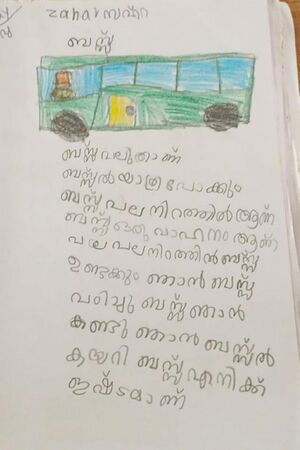 zaharസഹറ
ബസ്സ്
ബസ്സ് വലുതാണ്
ബസ്സൽ യാത്ര പോക്കും
ബസ്സ് പല നിറത്തിൽ ആണ്
ബസ്സ് ഒരു വാഹനം ആണ്
പല പല നിറത്തിൻ ബസ്സ്
ഉണ്ടക്കും ഞാൻ ബസ്സ്
വരച്ചു ബസ്സ് ഞാൻ
കണ്ടു ഞാൻ ബസ്സൽ
കയറി ബസ്സ് എനിക്ക്
ഇഷ്ടമാണ്